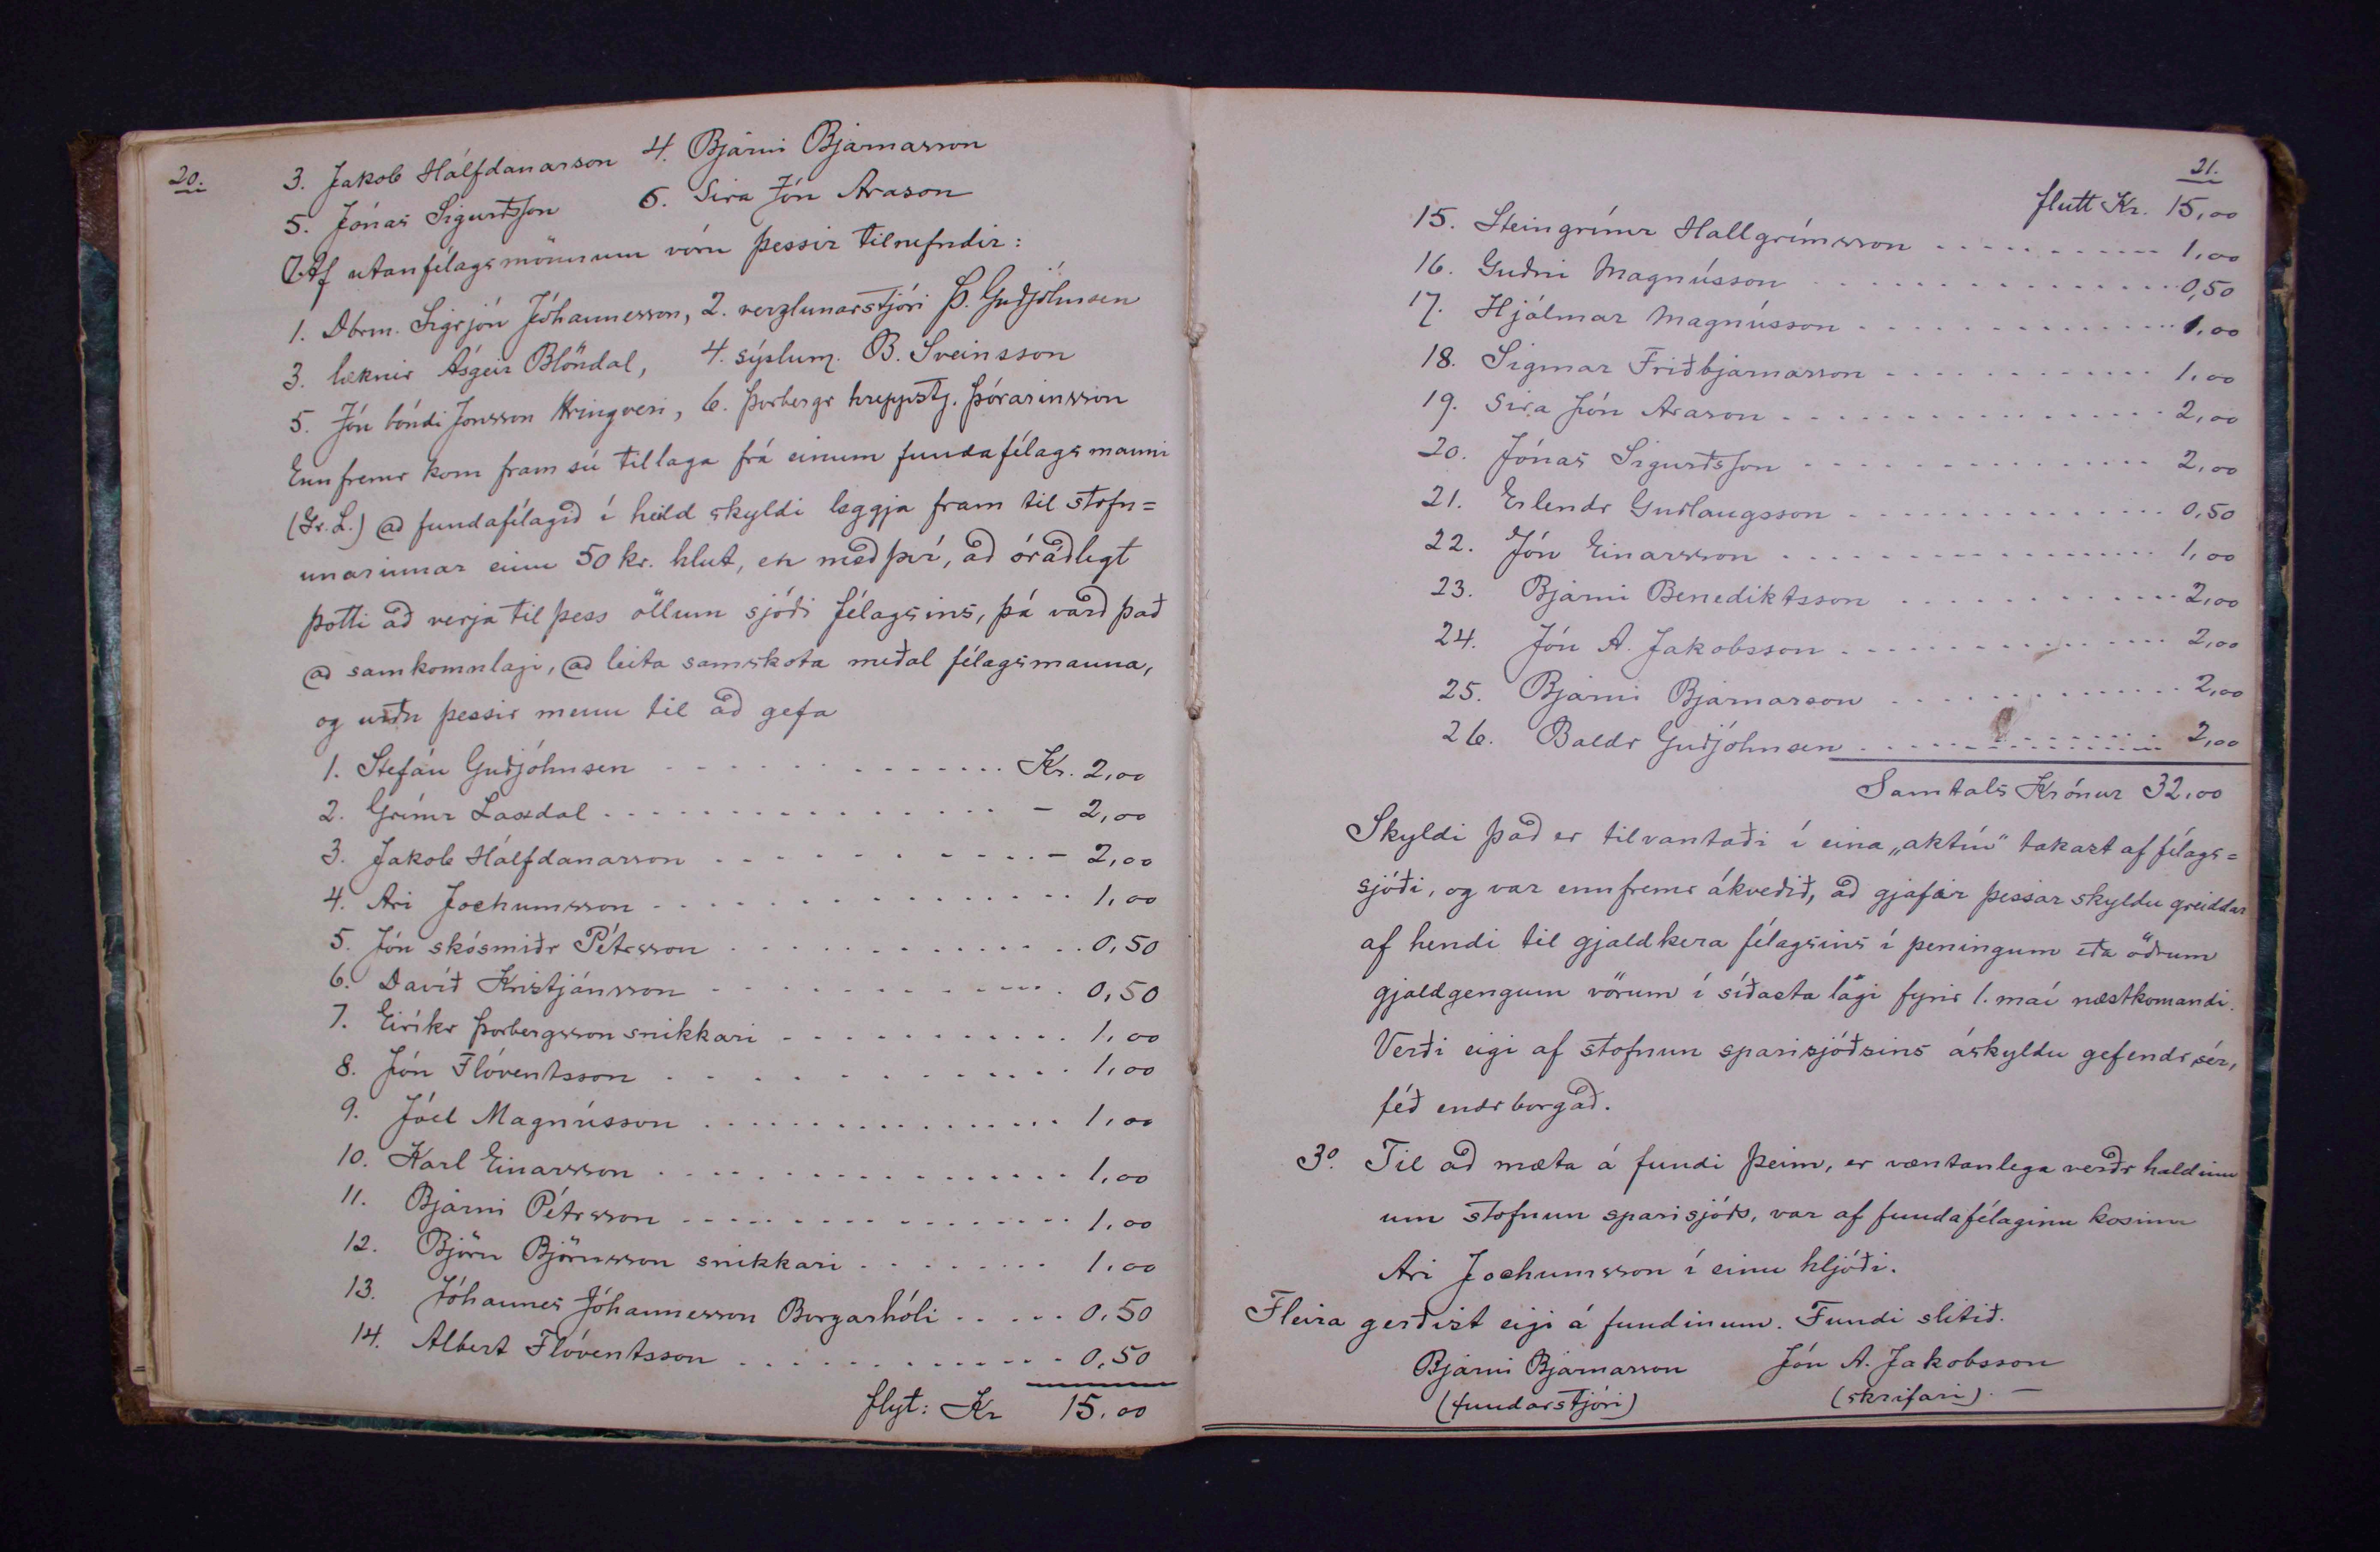 20.
3. Jakob Hálfdanarson 4. Bjarni Bjarnarson
5. Jónas Sigurðsson 6. Sira Jón Arason
Af utanfélagsmönnum vóru þessir tilnefndir:
1. Dbrm. Sigrjón Jóhannesson, 2. verzlunarstjóri Þ. Guðjohnsen
3. læknir Ásgeir Blöndal, 4. sýslum. B. Sveinsson
5. Jón bóndi Jonsson Hringveri, 6. Þorbergr hreppstj. Þórarinsson
Ennfremr kom fram sú tillaga frá einum fundafélagsmanni
(Gr. L.) að fundafélagið í heild skyldi leggja fram til stofn=
unarinnar einn 50 kr. hlut, en með því, að óráðlegt
þotti að verja til þess öllum sjóði félagsins, þá varð það
að samkomulagi, að leita samskota meðal félagsmanna,
og urðu þessir menn til að gefa
1. Stefán Guðjohnsen - - - - - - - - - - - - Kr. 2,00
2. Grímr Laxdal - - - - - - - - - - - - - 2,00
3. Jakob Hálfdanarson - - - - - - - - - - - 2,00
4. Ari Jochumsson - - - - - - - - - - - - 1,00
5. Jón skósmiðr Pétrsson - - - - - - - - - - 0,50
6. Davíð Kristjánsson - - - - - - - - - - 0,50
7. Eiríkr Þorbergsson snikkari - - - - - - - - - 1,00
8. Jón Flóventsson - - - - - - - - - - - - 1,00
9. Jóel Magnússon - - - - - - - - - - - - 1,00
10. Karl Einarsson - - - - - - - - - - - - 1,00
11. Bjarni Pétrsson - - - - - - - - - - - - 1,00
12. Björn Björnsson snikkari - - - - - - - - 1,00
13. Jóhannes Jóhannesson Borgarhóli - - - - - 0,50
14. Albert Flóventsson - - - - - - - - - - - 0,50
flyt: Kr 15,00
21.
flutt Kr. 15,00
15. Steingrímr Hallgrímsson - - - - - - - - - - 1,00
16. Guðni Magnússon - - - - - - - - - - - 0,50
17. Hjálmar Magnússon - - - - - - - - - - - 1,00
18. Sigmar Friðbjarnarson - - - - - - - - - - 1,00
19. Sira Jón Arason - - - - - - - - - - - - 2,00
20. Jónas Sigurðsson - - - - - - - - - - - - 2,00
21. Erlendr Guðlaugsson - - - - - - - - - - - 0,50
22. Jón Einarsson - - - - - - - - - - - - - 1,00
23. Bjarni Benediktsson - - - - - - - - - - - 2,00
24. Jón A. Jakobsson - - - - - - - - - - - - 2,00
25. Bjarni Bjarnarson - - - - - - - - - - - 2,00
26. Baldr Guðjohnsen - - - - - - - - - - - 2,00
Samtals Krónur 32,00
Skyldi það er tilvantaði í eina „aktíu" takast af félags=
sjóði, og var ennfremr ákveðið, að gjafir þessar skyldu greiddar
af hendi til gjaldkera félagsins í peningum eða öðrum
gjaldgengum vörum í síðasta lagi fyrir 1. maí næstkomandi.
Verði eigi af stofnun sparisjóðsins áskyldu gefendr sér,
féð endrborgað.
3º. Til að mæta á fundi þeim, er væntanlega verðr haldinn
um stofnun sparisjóðs, var af fundafélaginu kosinn
Ari Jochumsson í einu hljóði.
Fleira gerðist eigi á fundinum. Fundi slitið.
Bjarni Bjarnarson Jón A. Jakobsson
(fundarstjóri) (skrifari). —